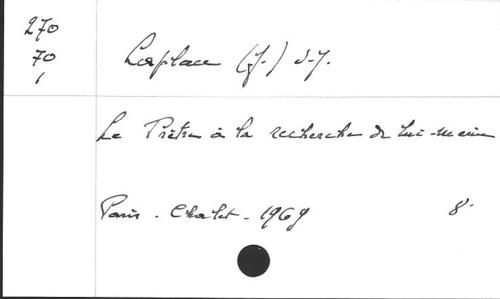 270
70
1
Laplace (J.) S.J.
Le Prêtre à la recherche de lui-même
Paris - Chalet - 1969 8°